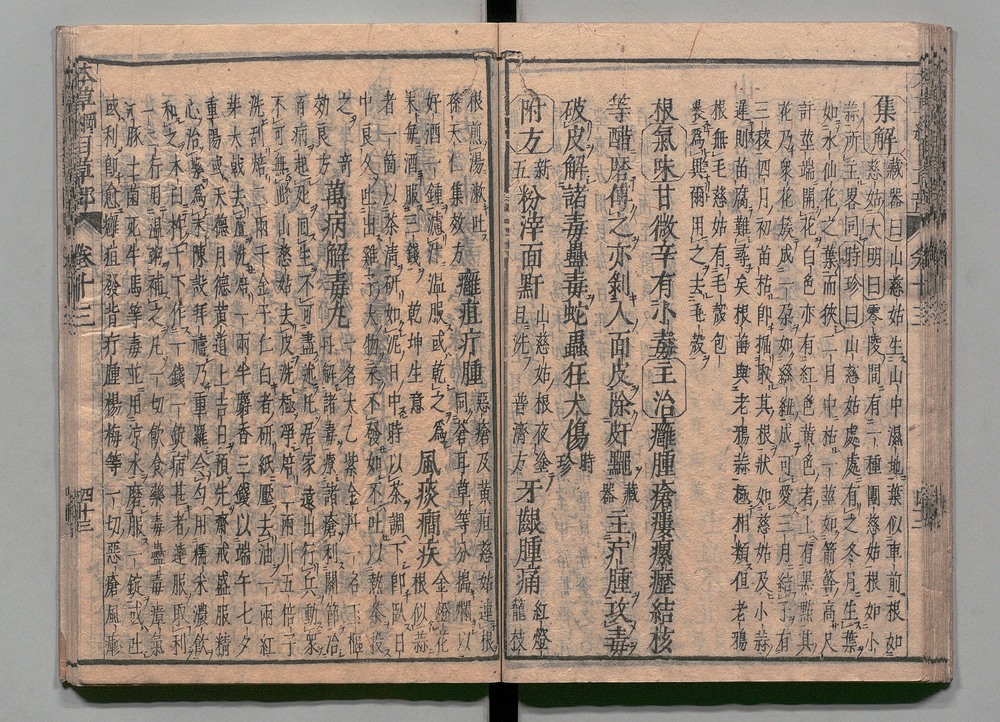 集解藏器曰山慈姑生山中濕地葉似車前根如
慈姑大明曰零陵間有一種團慈姑根如小
蒜所主畧同時珍曰山慈姑處處有之冬月生葉
如水仙花之葉而狹二月中枯一莖如箭簳高尺
許莖端開花白色亦有紅色黃色者上有黑點其
花乃衆花簇成一朵如絲紐成可愛三月結子有
三稜四月初苗枯即掘取其根狀如慈姑及小蒜
遲則苗腐難尋矣根苗與老鴉蒜極相類但老鴉
根無毛慈姑有毛殼包
裹為異爾用之去毛殼
根氣味甘微辛有小毒主治癰腫瘡瘻瘰癧結核
等醋磨傅之亦剝人面皮除皯䵳藏器主疔腫攻毒
破皮解諸毒蠱毒蛇蟲狂犬傷時珍
附方新五粉滓面䵟山慈姑根夜塗旦洗普濟方牙齦腫痛紅燈籠枝
根煎湯漱吐孫天仁集效方癰疽疔腫惡瘡及黃疸慈姑連根同蒼耳草等分搗爛以
好酒一鍾濾汁溫服或乾之為末每酒服三錢乾坤生意風痰癎疾金燈花根似蒜
者一箇以茶清研如泥日中時以茶調下即臥日
中良久吐出雞子大物永不發如不吐以熱茶投
之竒效良方萬病解毒丸一名太乙紫金丹一名玉樞丹解諸毒療諸瘡利關節治
百病起死回生不可盡述凡居家遠出行兵動衆
不可無此山慈姑去皮洗極淨焙二兩川五倍子
洗刮焙二兩千金子仁白者研紙壓去油一兩紅
芽大戟去蘆洗焙一兩半麝香三錢以端午七夕
重陽或天德月德黃道上吉日預先齋戒盛服精
心治藥為末陳設拜禱乃重羅令勻用糯米濃飲
和之木臼杵千下作一錢一錠病甚者連服取利
一二行用溫粥補之凡一切飲食藥毒蠱毒瘴氣
河豚土菌死牛馬等毒並用凉水磨服一錠或吐
或利即愈癰疽發背疔腫楊梅等一切惡瘡風疹
本草綱目草部 卷十三 四十三